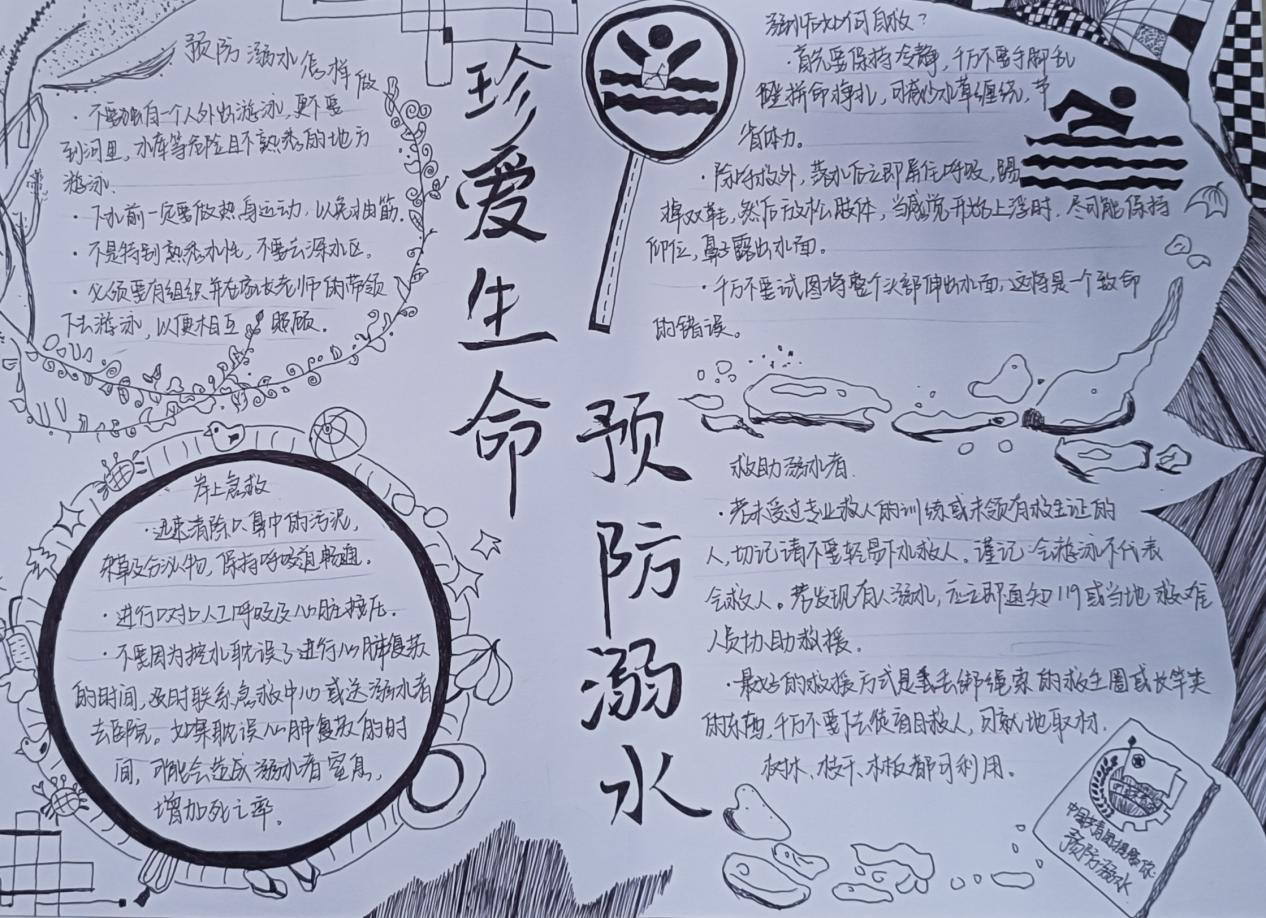 珍爱生命
预防溺水
预防溺水怎样做
·不要独自一个人外出游泳,更不要
到河里、水库等危险且不熟悉的地方
游泳.
·下水前一定要做热身运动,以免抽筋.
·不是特别熟悉水性,不要去深水区。
·必须要有组织并在家长老师的带领
下去游泳,以便相互照顾。
岸上急救
·迅速清除口鼻中的污泥,
杂草及分泌物,保持呼吸道畅通。
·进行口对口人工呼吸及心脏按压.
·不要因为控水耽误了进行心肺复苏
的时间,及时联系急救中心或送溺水者
去医院。如果耽误心肺复苏的时
间,可能会造成溺水者窒息,
增加死亡率。
溺水后如何自救?
·首先要保持冷静,千万不要手脚乱
蹬拼命挣扎,可减少水草缠绕,节
省体力。
·除呼救外,落水后立即屏住呼吸,踢
掉双鞋,然后放松肢体,当感觉开始上浮时,尽可能保持
仰位,鼻子露出水面。
·千万不要试图将整个头部伸出水面,这将是一个致命
的错误。
救助溺水者.
·若未受过专业救人的训练或未领有救生证的
人,切记请不要轻易下水救人。谨记:会游泳不代表
会救人。若发现有人溺水,应立即通知119或当地救难
人员协助救援。
·最好的救援方式是丢绑绳索的救生圈或长竿类
的东西,千万不要下去徒手救人,可就地取材.
树木、枝干、木板都可利用。
预防溺水